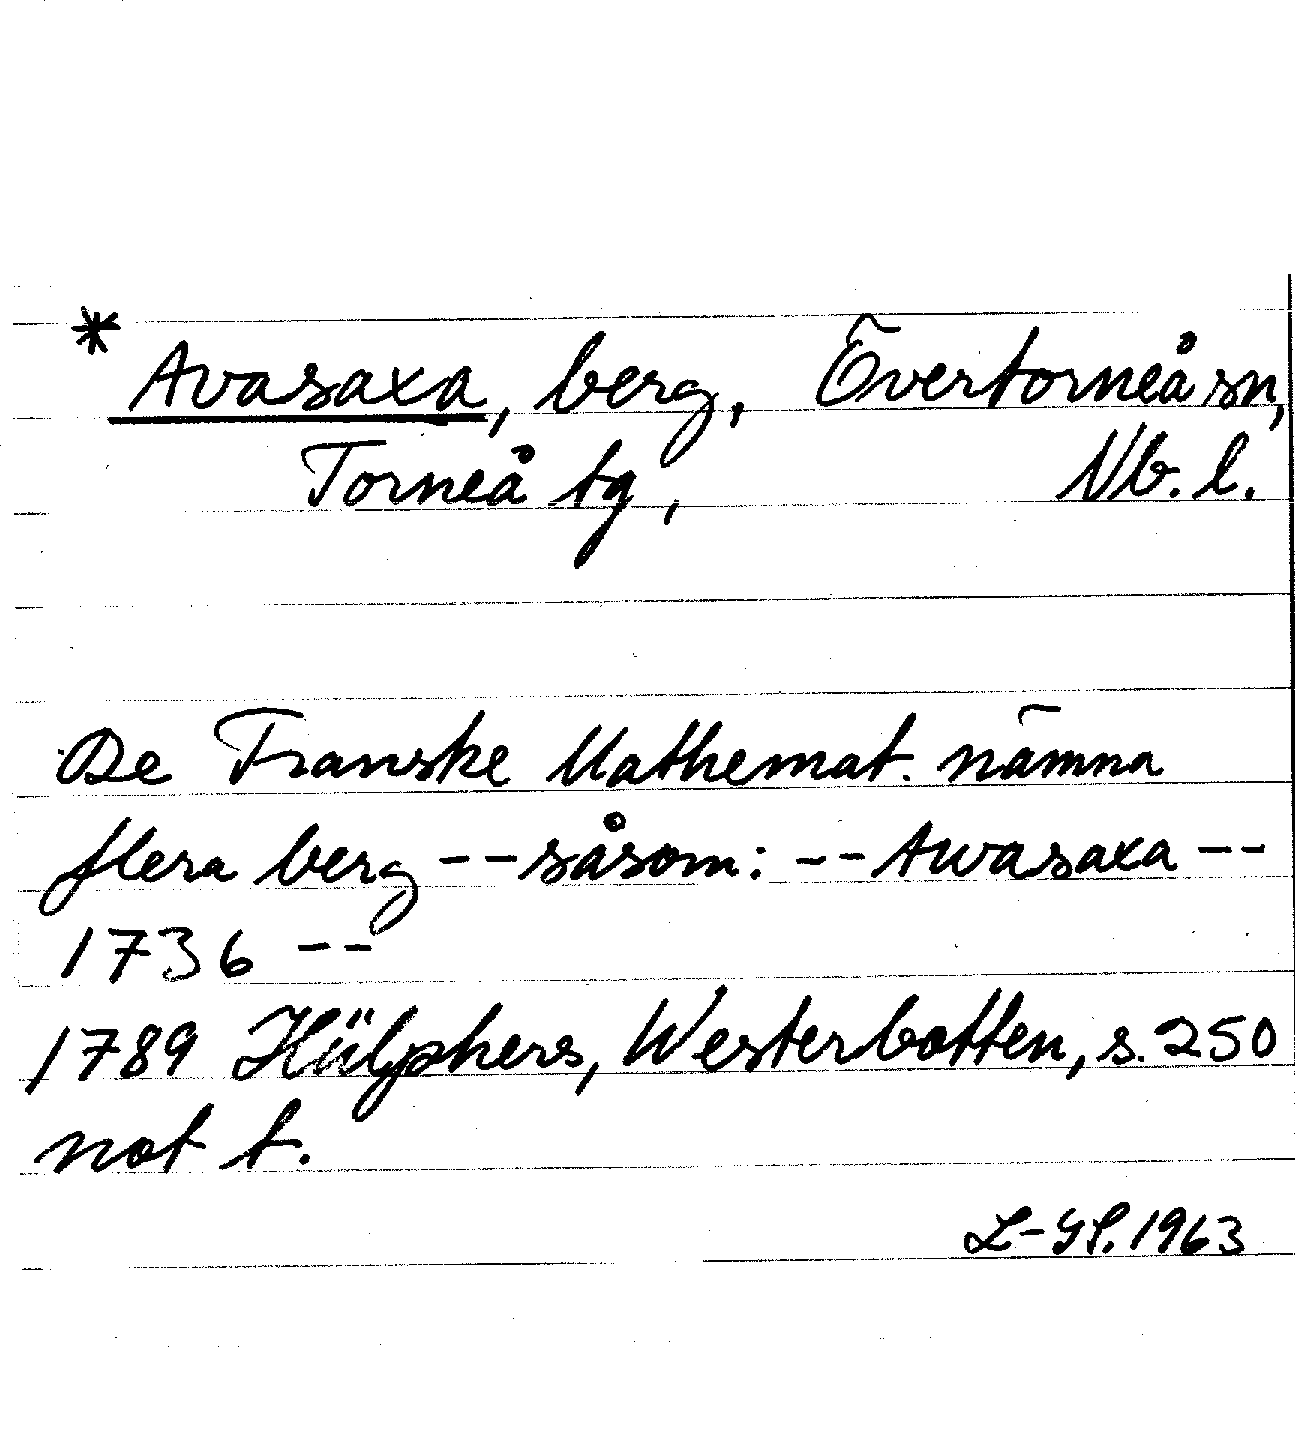 * Avasaxa, berg, Övertorneå sn,
Torneå tg, Nb. l.
De Franske Mathemat. nämna
flera berg -- såsom: -- Awasaxa --
1736 --
1789 Hülphers, Westerbotten, s. 250
not t.
1963